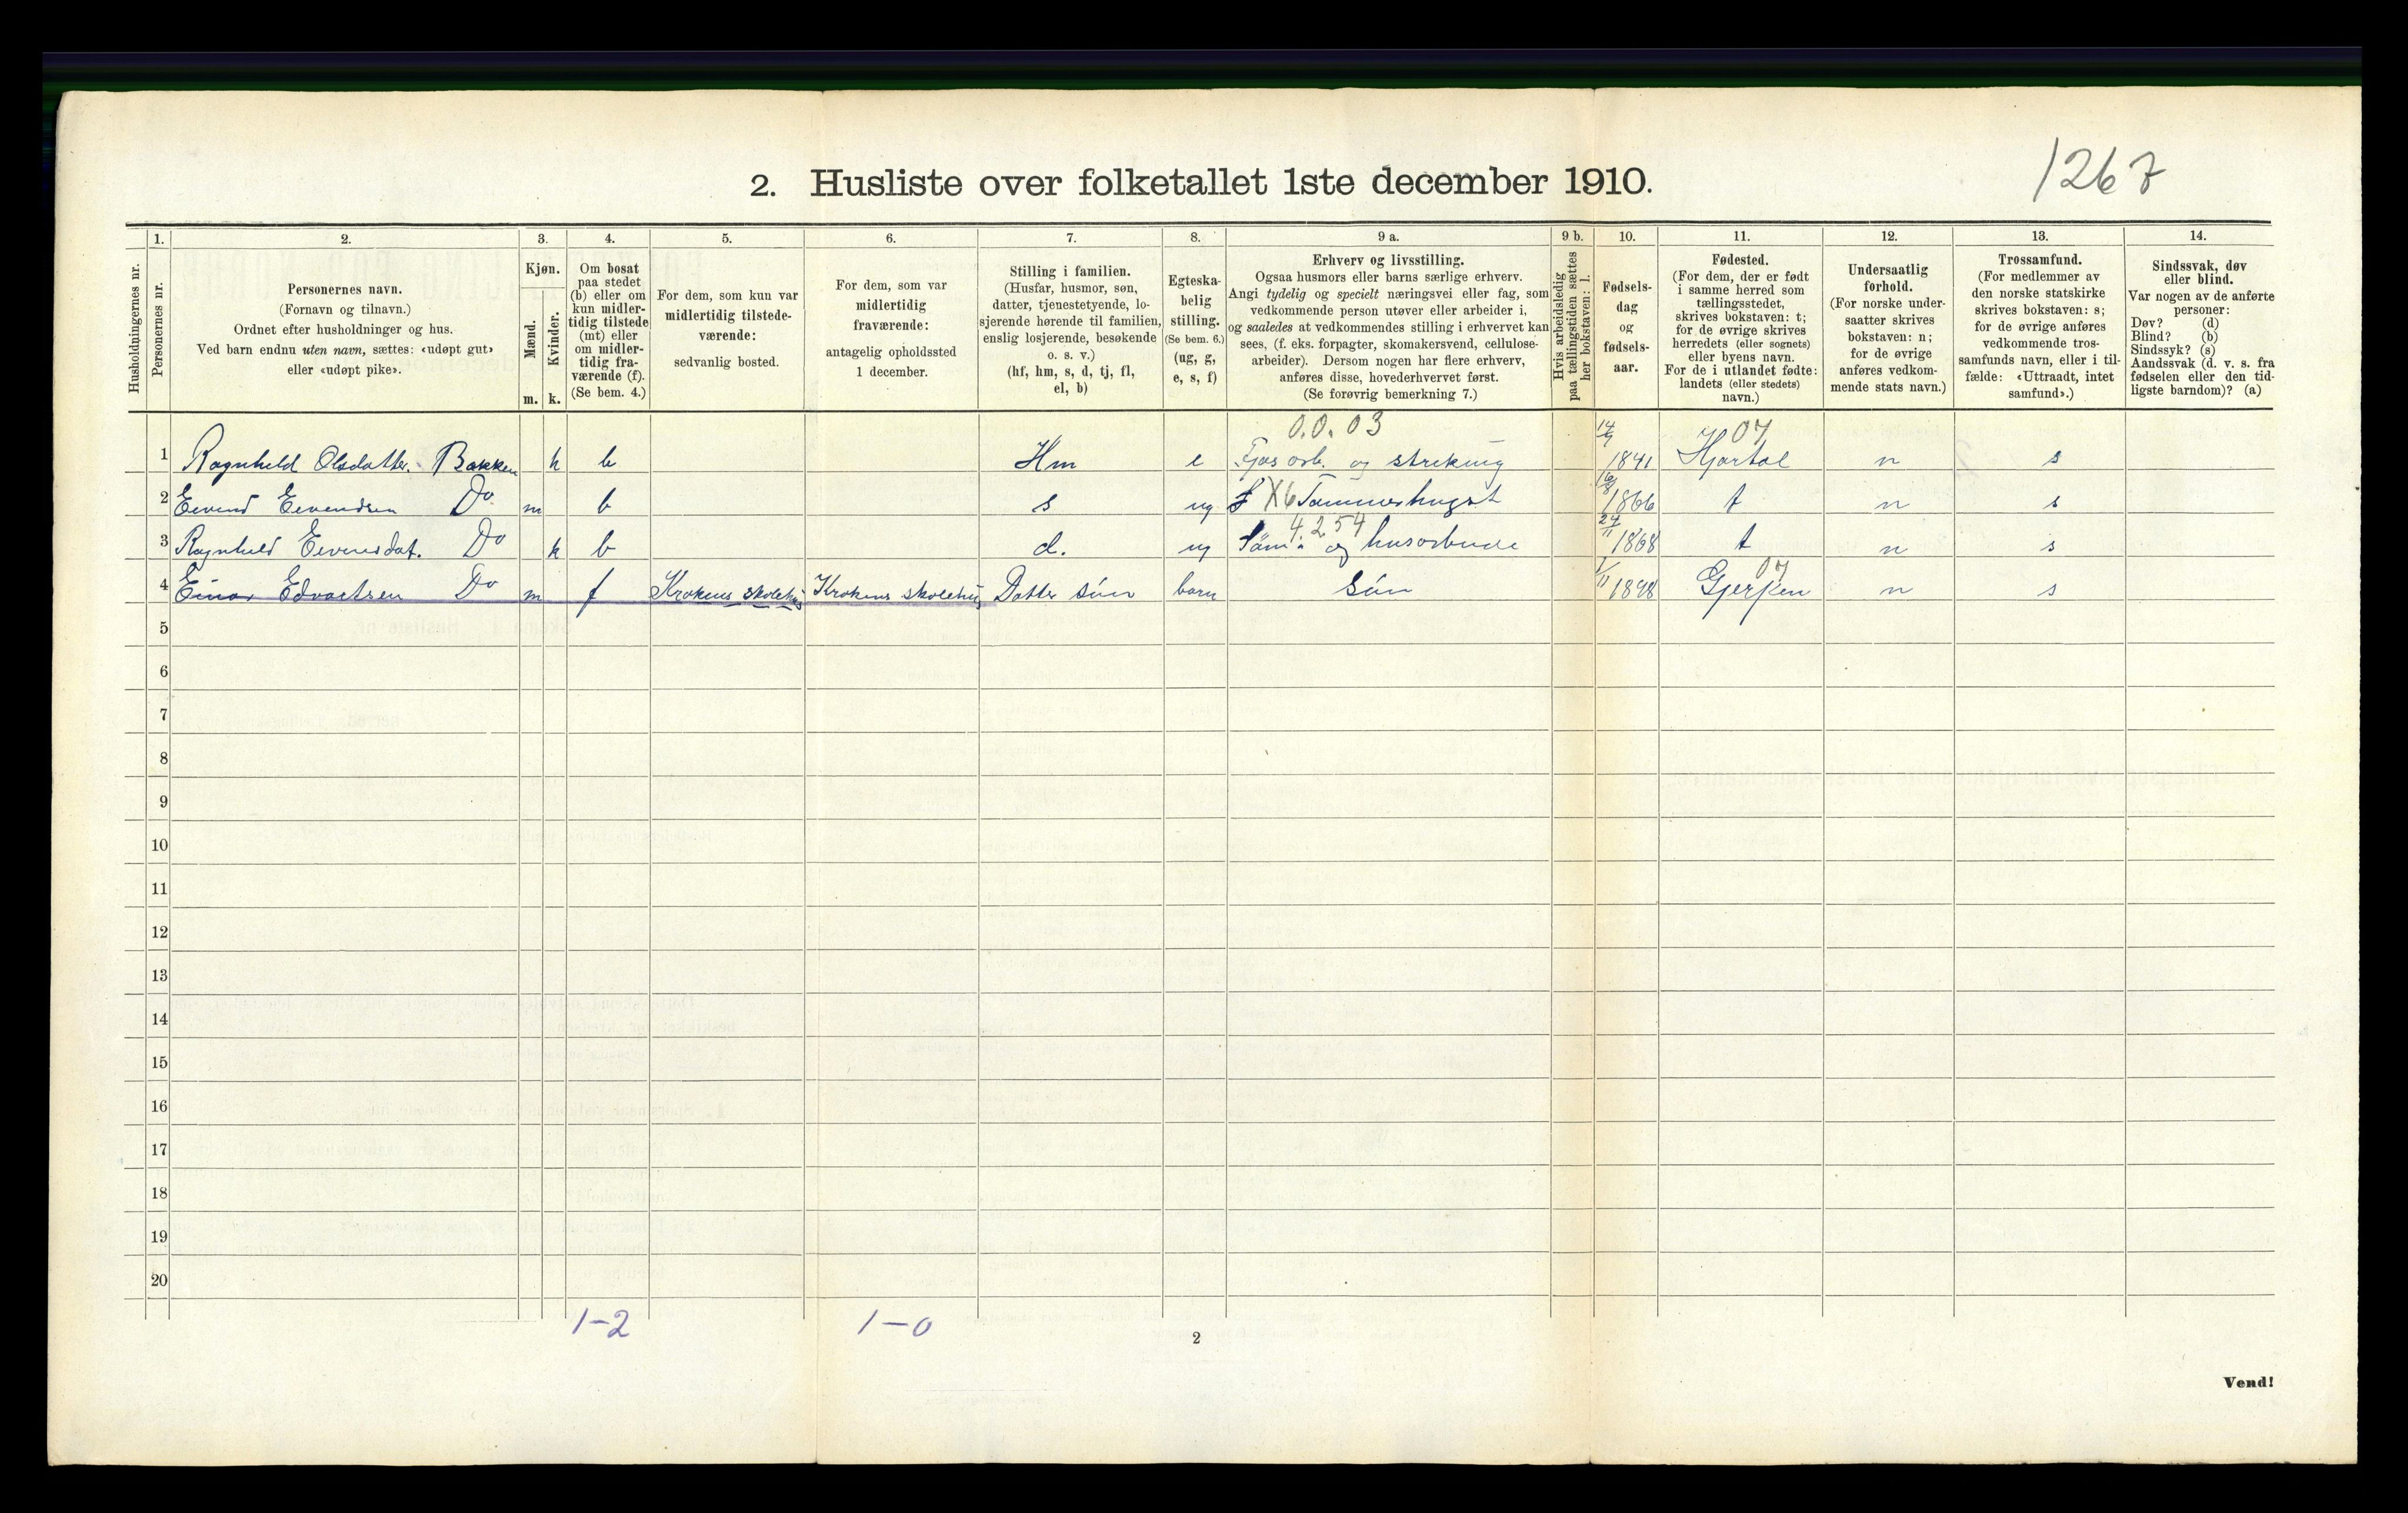 1267
2. Husliste over folketallet 1ste december 1910.
1. 2. 3. 4. 5. 6. 7. 8. 9 a. 9 b. 10. 11. 12. 13. 14.
Husholdningernes nr.
Personernes nr.
Personernes navn.
(Fornavn og tilnavn.)
Ordnet efter husholdninger og hus.
Ved barn endnu uten navn, sættes: «udøpt gut»
eller «udøpt pike».
Kjøn.
Mænd.
Kvinder.
m. k.
Om bosat
paa stedet
(b) eller om
kun midler-
tidig tilstede
(mt) eller
om midler-
tidig fra-
værende (f).
(Se bem. 4.)
For dem, som kun var
midlertidig tilstede-
værende:
sedvanlig bosted.
For dem, som var
midlertidig
fraværende:
antagelig opholdssted
1 december.
Stilling i familien.
(Husfar, husmor, søn,
datter, tjenestetyende, lo-
sjerende hørende til familien,
enslig losjerende, besøkende
o. s. v.)
(hf, hm, s, d, tj, fl,
el, b)
Egteska-
belig
stilling.
(Se bem. 6.)
(ug, g,
e, s, f)
Erhverv og livsstilling.
Ogsaa husmors eller barns særlige erhverv.
Angi tydelig og specielt næringsvei eller fag, som
vedkommende person utøver eller arbeider i,
og saaledes at vedkommendes stilling i erhvervet kan
sees, (f. eks. forpagter, skomakersvend, cellulose-
arbeider). Dersom nogen har flere erhverv,
anføres disse, hovederhvervet først.
(Se forøvrig bemerkning 7.)
Hvis arbeidsledig
paa tællingstiden sættes
her bokstaven: l.
Fødsels-
dag
og
fødsels-
aar.
Fødested.
(For dem, der er født
i samme herred som
tællingsstedet,
skrives bokstaven: t;
for de øvrige skrives
herredets (eller sognets)
eller byens navn.
For de i utlandet fødte:
landets (eller stedets)
navn.)
Undersaatlig
forhold.
(For norske under-
saatter skrives
bokstaven: n;
for de øvrige
anføres vedkom-
mende stats navn.)
Trossamfund.
(For medlemmer av
den norske statskirke
skrives bokstaven: s;
for de øvrige anføres
vedkommende tros-
samfunds navn, eller i til-
fælde: «Uttraadt, intet
samfund».)
Sindssvak, døv
eller blind.
Var nogen av de anførte
personer:
Døv? (d)
Blind? (b)
Sindssyk? (s)
Aandssvak (d. v. s. fra
fødselen eller den tid-
ligste barndom)? (a)
0.0.03 14/9 07
1 Ragnhild Olsdatter. Bakken k b Hm e Fjøsarb. og strikking 1841 Hjartdal n s
2 Eivind Eivendsen Do m b s ug X6 Tømmerhugst 1866 t n s
4.254 24/11
3 Ragnhild Eivensdat. Do k b d. ug Söm. og husarbeide 1868 t n s
07
4 Einar Edvartsen Do m f Krokens skolehus Krokens skolehus Datter sön barn Sön 1/11 1898 Gjerpen n s
5
6
7
8
9
10
11
12
13
14
15
16
17
18
19
20
1-2 1-0
2
Vend!